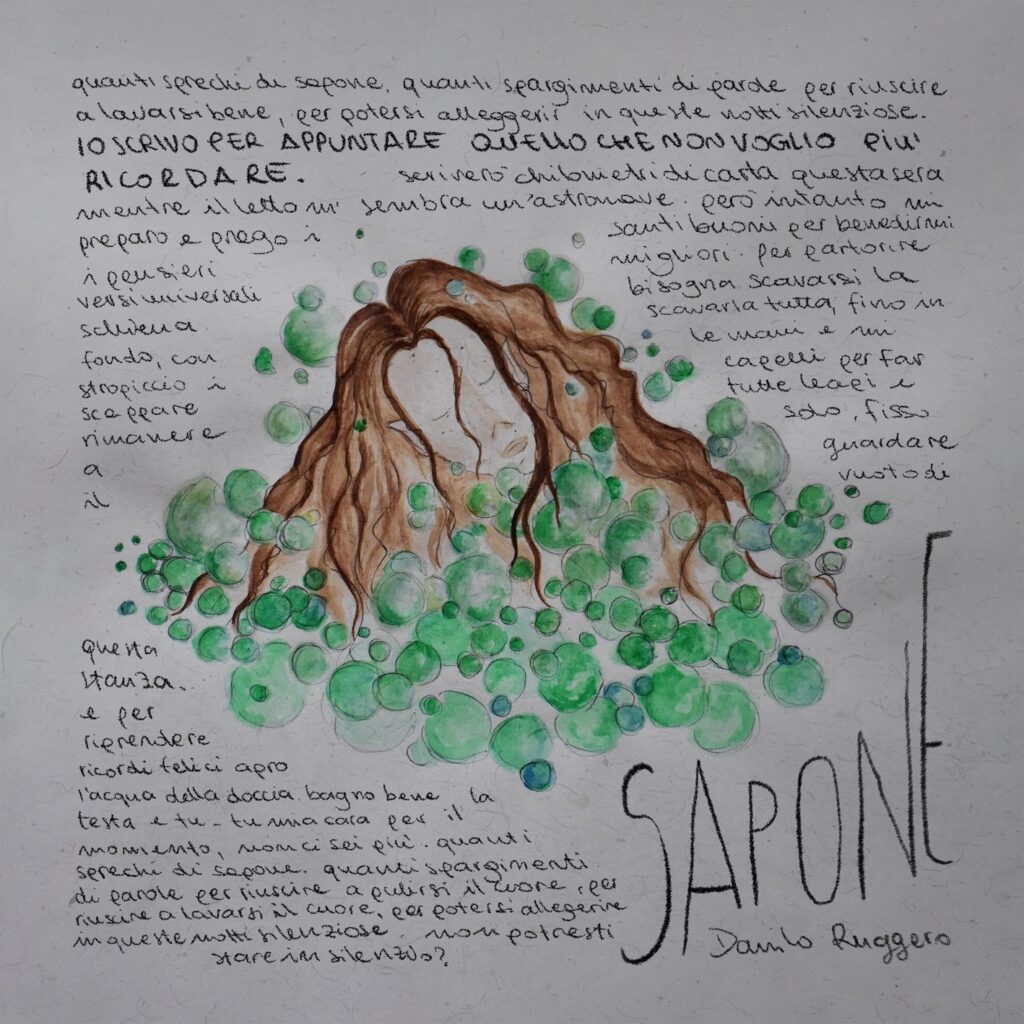 quanti sprechi di sapone, quanti spargimenti di parole per riuscire
a lavarsi bene, per potersi alleggerir in queste notti silenziose.
IO SCRIVO PER APPUNTARE QUELLO CHE NON VOGLIO PIU'
RICORDARE. scriverò chilometri di carta questa sera
mentre il letto m' sembra un'astronave. però intanto mi
preparo e prego i santi buoni per benedirmi
i pensieri migliori. per partorire
versi universali bisogna scavarsi la
schiena scavarla tutta, fino in
fondo, con le mani e mi
stropiccio i capelli per far
scappare tutte le api e
rimanere solo, fisso
a guardare
il vuoto di
questa
stanza.
e per
riprendere
ricordi felici apro
l'acqua della doccia. bagno bene la
testa e tu - tu mia cara per il
momento, non ci sei più. quanti
sprechi di sapone. quanti spargimenti
di parole per riuscire a pulirsi il cuore, per
riuscire a lavarsi il cuore, per potersi allegerire
in queste notti silenziose. non potresti
stare in silenzio?
SAPONE
Danilo Ruggero